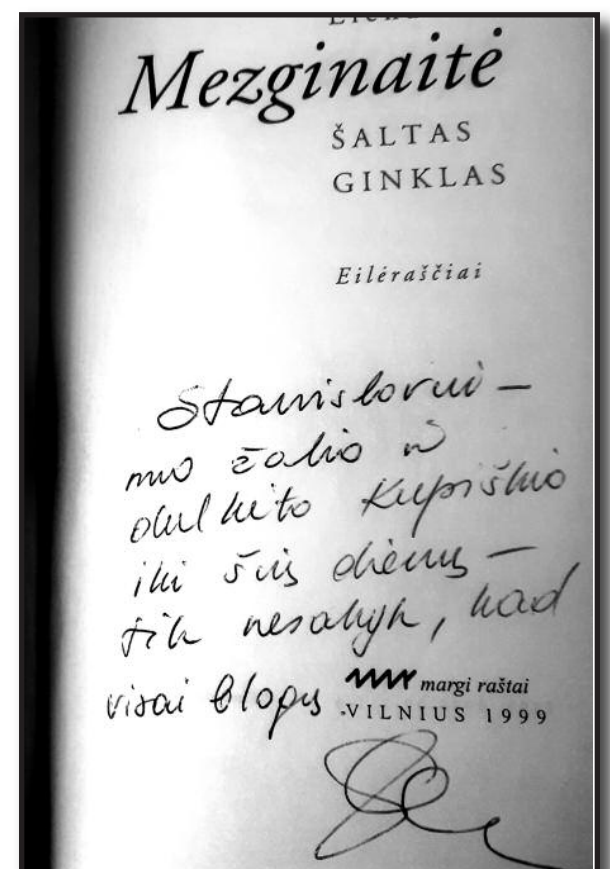 Mezginaitė
ŠALTAS
GINKLAS
Eilėraščiai
Stanislovui –
nuo žalio ir
dulkėto Kupiškio
iki šių dienų –
tik nesakyk, kad
visai blogų
margi raštai
VILNIUS 1999